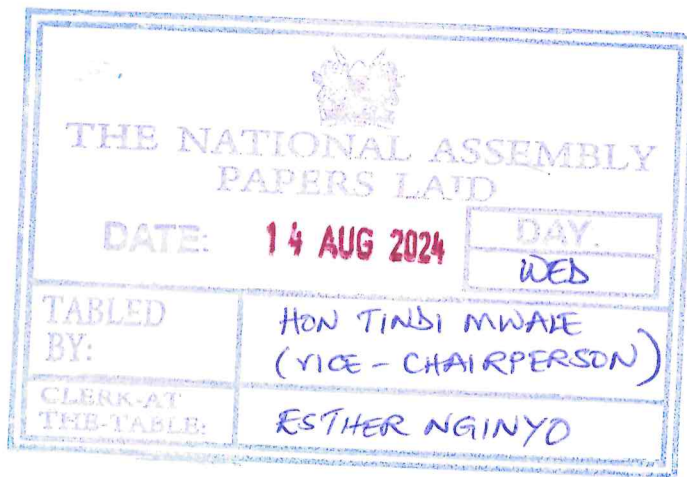 THE NATIONAL ASSEMBLY
PAPERS LAID
DATE: 14 AUG 2024
DAY.
WED
TABLED
BY:
HON TINDI MWALE
(VICE-CHAIRPERSON)
CLERK-AT
THE-TABLE:
ESTHER NGINYO